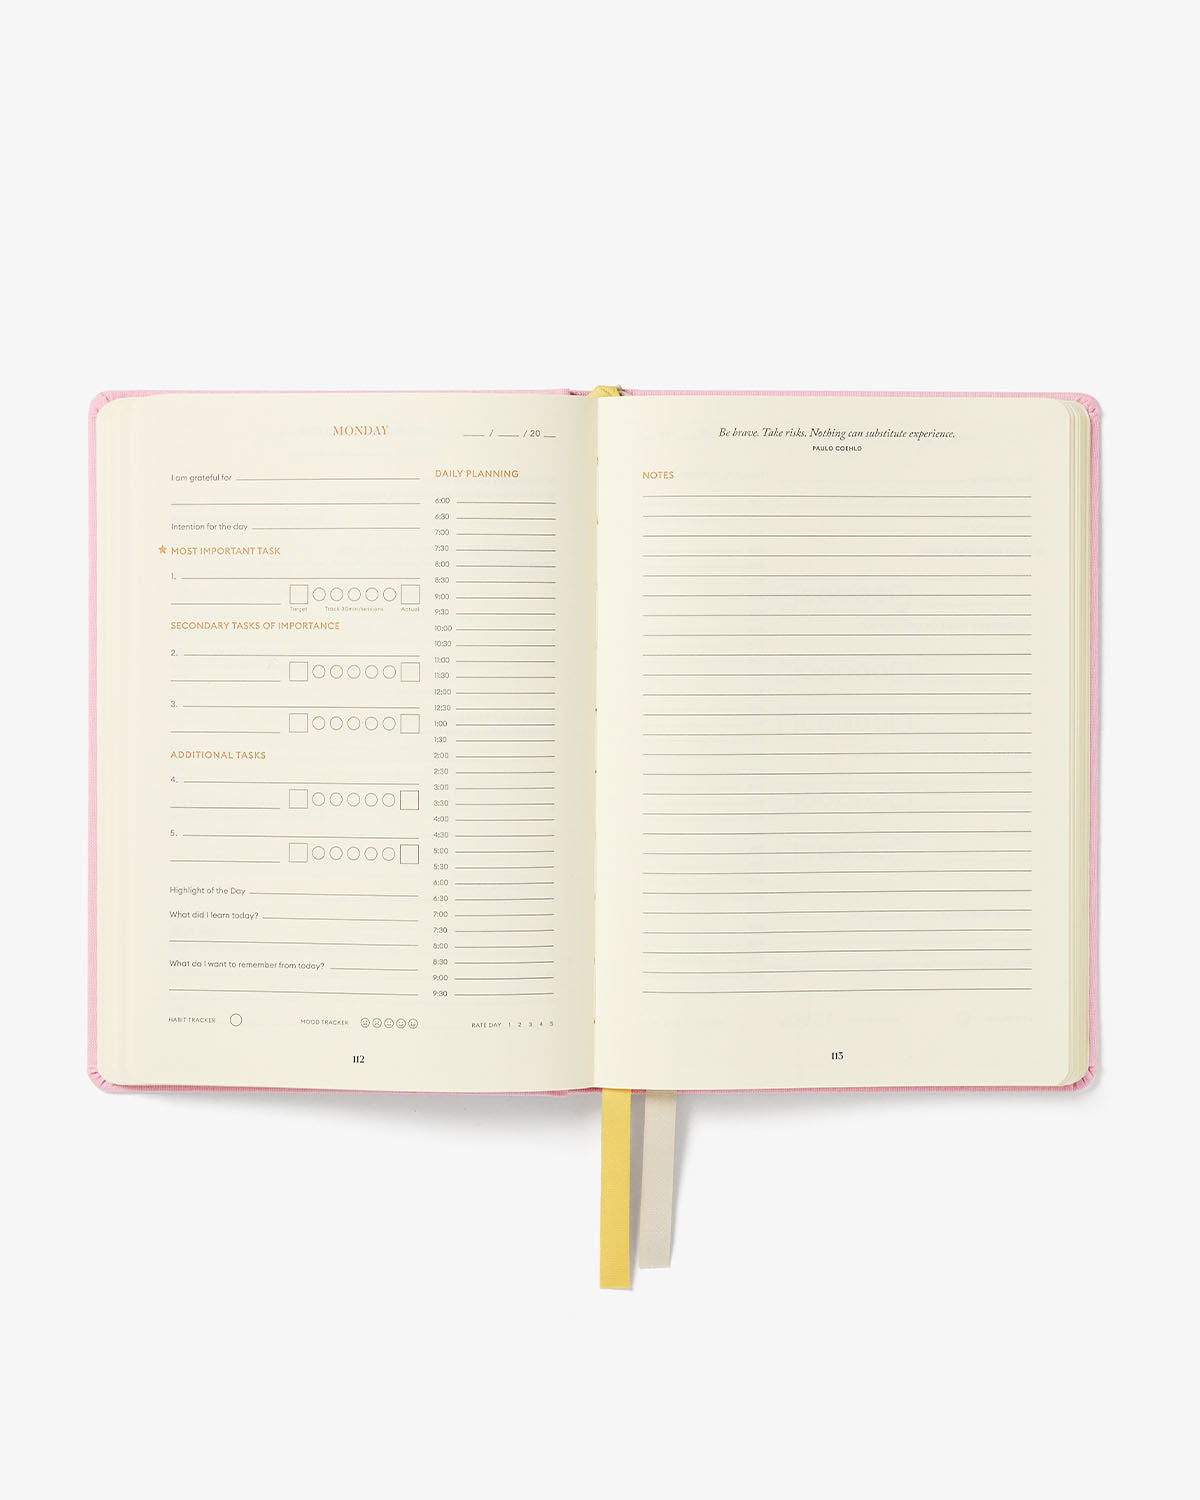 MONDAY
___ / ___ / 20 __
I am grateful for
Intention for the day
MOST IMPORTANT TASK
1.
Target Track 30min/sessions Actual
SECONDARY TASKS OF IMPORTANCE
2.
3.
ADDITIONAL TASKS
4.
5.
Highlight of the Day
What did I learn today?
What do I want to remember from today?
HABIT TRACKER
MOOD TRACKER
DAILY PLANNING
6:00
6:30
7:00
7:30
8:00
8:30
9:00
9:30
10:00
10:30
11:00
11:30
12:00
12:30
1:00
1:30
2:00
2:30
3:00
3:30
4:00
4:30
5:00
5:30
6:00
6:30
7:00
7:30
8:00
8:30
9:00
9:30
RATE DAY 1 2 3 4 5
112
Be brave. Take risks. Nothing can substitute experience.
PAULO COEHLO
NOTES
113